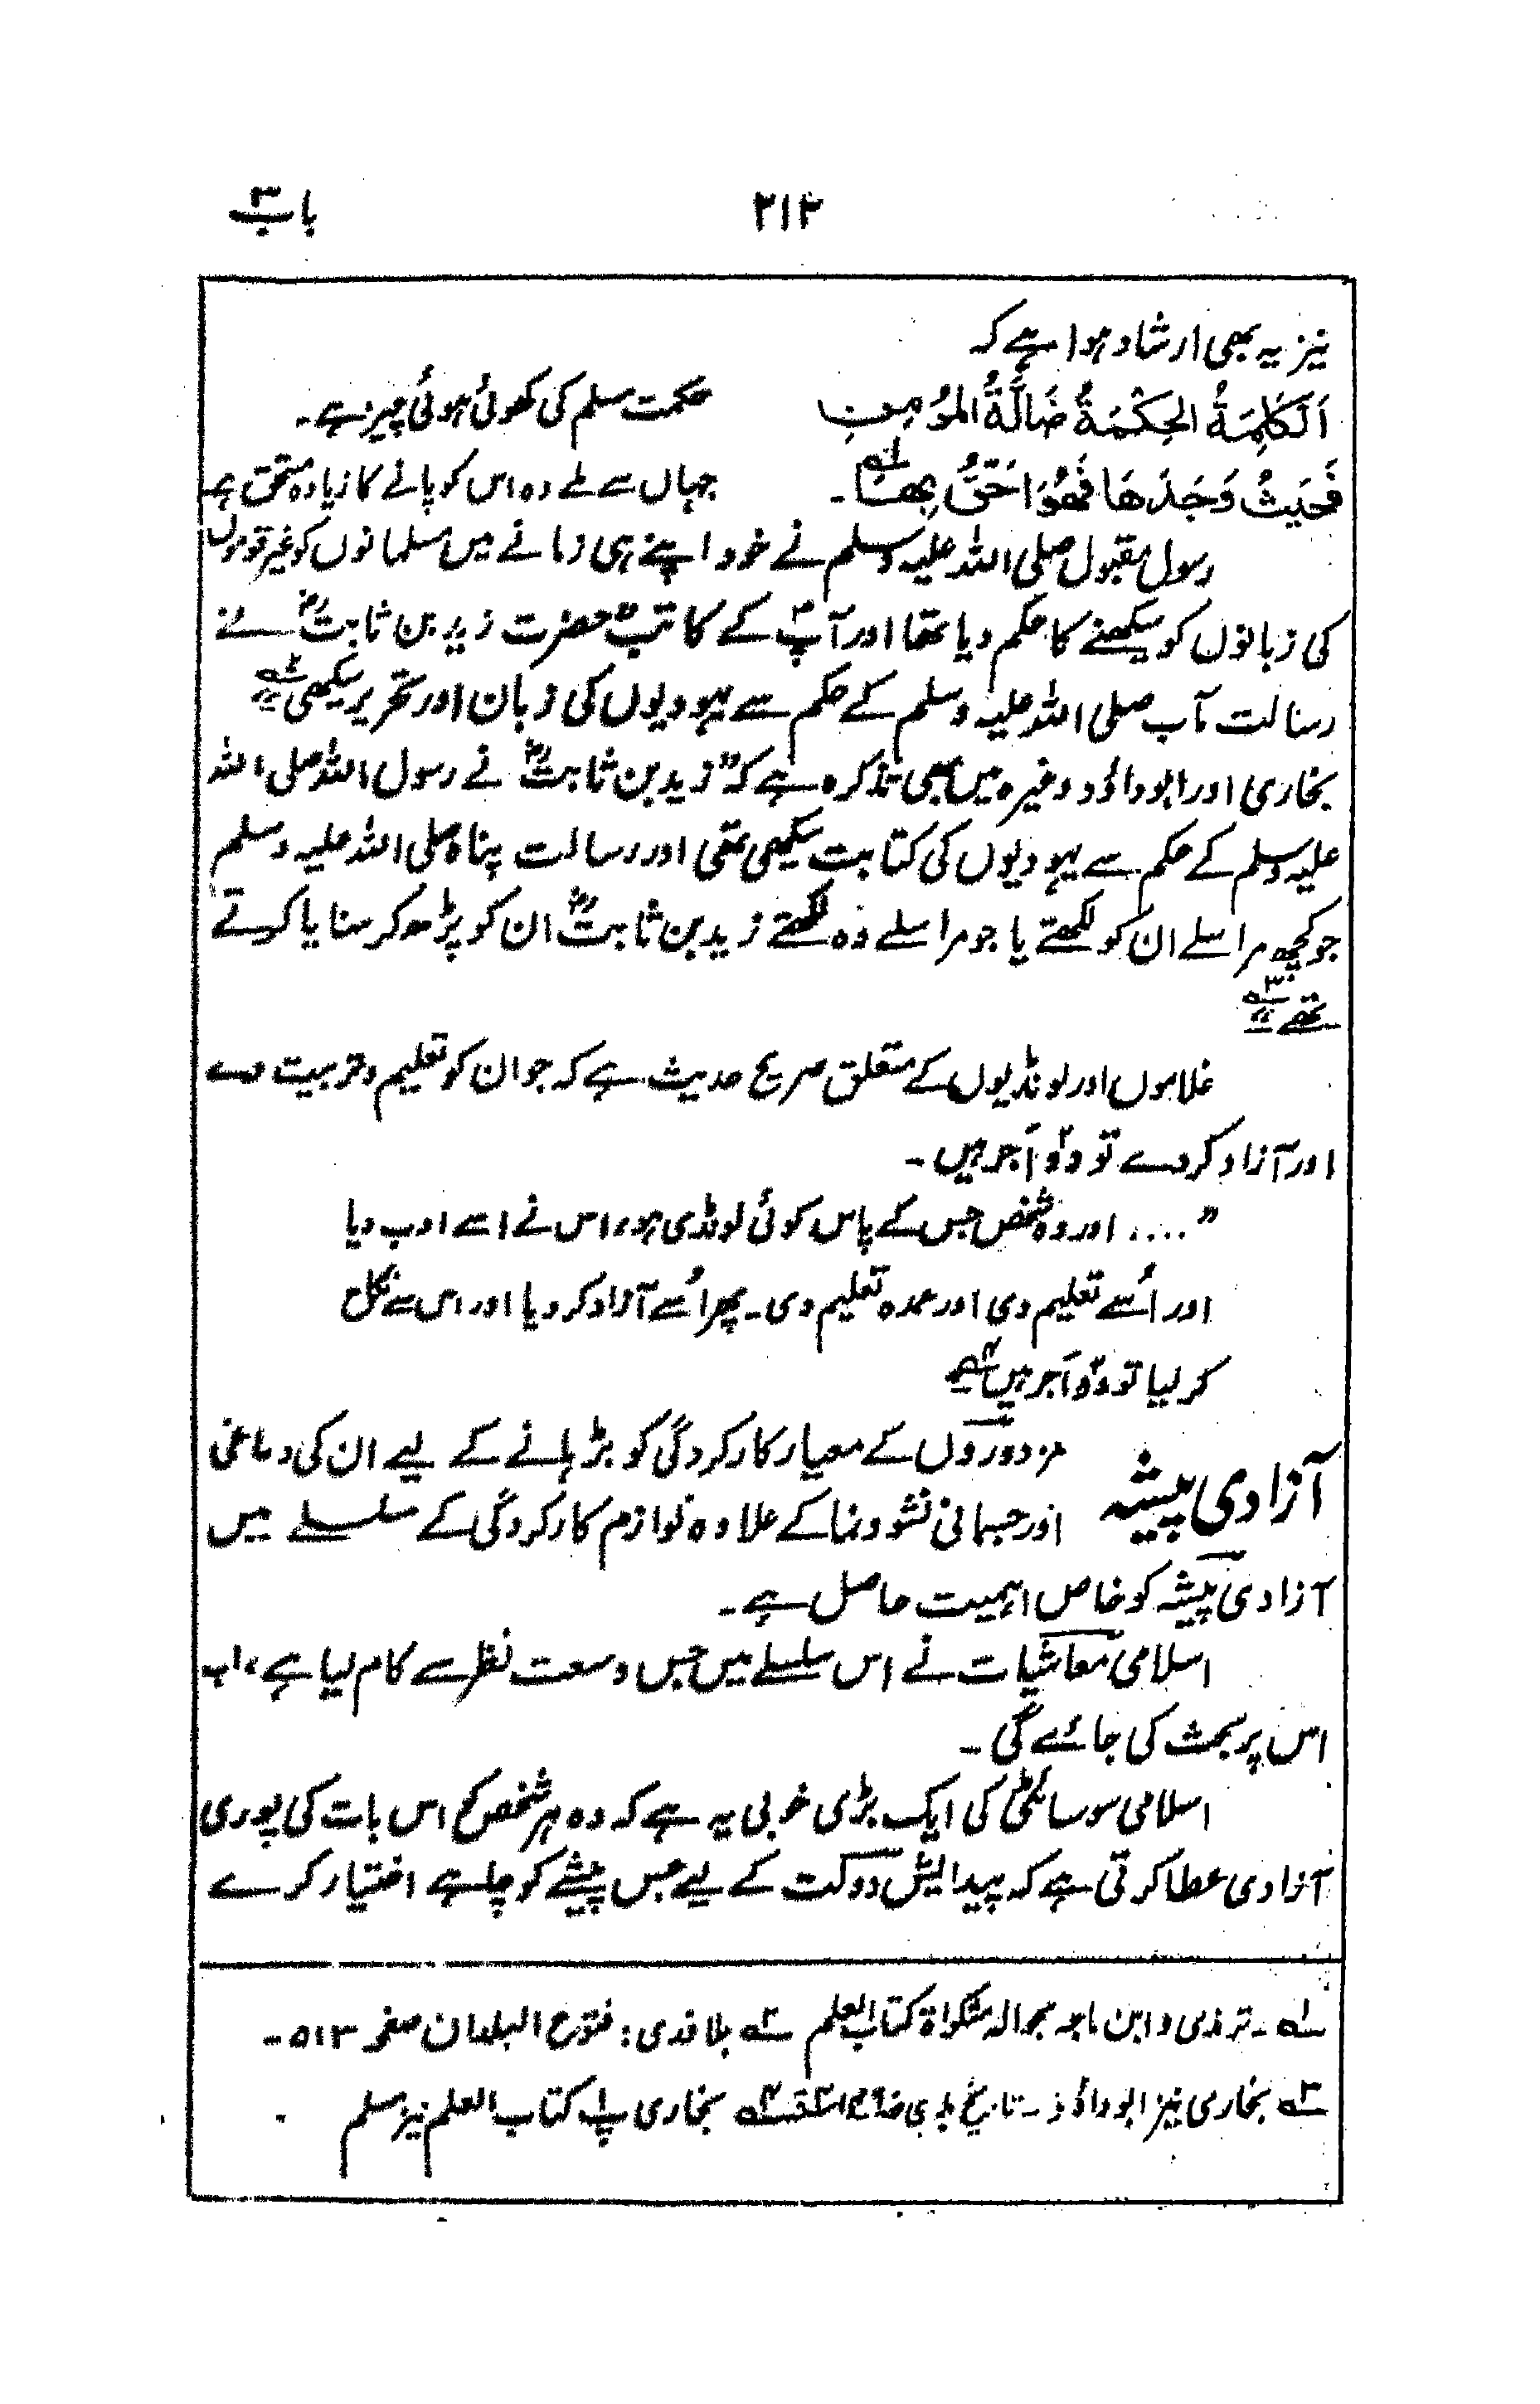 باب ۳
۲۱۲
نیز یہ بھی ارشاد ہوا ہے کہ
اَلْکَلِمَۃُ الحِکْمَۃُ ضَالَّۃُ المؤمِنِ
حکمت مسلم کی کھوئی ہوئی چیز ہے۔
فَحَیثُ وَجَدَھَا فَھُوَ اَحَقُّ بِھَا ؎۱۔
جہاں سے ملے وہ اس کو پانے کا زیادہ مستحق ہے
رسول مقبول صلی اللہ علیہ وسلم نے خود اپنے ہی زمانے میں مسلمانوں کو غیر قوموں
کی زبانوں کو سیکھنے کا حکم دیا تھا اور آپؐ کے کاتب حضرت زید بن ثابتؓ نے
رسالت مآب صلی اللہ علیہ وسلم کے حکم سے یہودیوں کی زبان اور تحریر سیکھی ؎۲"
بخاری اور ابوداؤد وغیرہ میں بھی تذکرہ ہے کہ "زید بن ثابتؓ نے رسول اللہ صلی اللہ
علیہ وسلم کے حکم سے یہودیوں کی کتابت سیکھی تھی اور رسالت پناہ صلی اللہ علیہ وسلم
جو کچھ مراسلے ان کو لکھتے یا جو مراسلے وہ لکھتے زید بن ثابتؓ ان کو پڑھ کر سنایا کرتے
تھے ؎۳"
غلاموں اور لونڈیوں کے متعلق صریح حدیث ہے کہ جو ان کو تعلیم و تربیت دے
اور آزاد کردے تو دو اَجر ہیں۔
".... اور وہ شخص جس کے پاس کوئی لونڈی ہو، اس نے اسے ادب دیا
اور اُسے تعلیم دی اور عمدہ تعلیم دی۔ پھر اُسے آزاد کردیا اور اس سے نکاح
کرلیا تو دو اَجر ہیں ؎۴"
آزادی پیشہ
مزدوروں کے معیار کارکردگی کو بڑہانے کے لیے ان کی دماغی
اور جسمانی نشوونما کے علاوہ لوازم کارکردگی کے سلسلے میں
آزادی پیشہ کو خاص اہمیت حاصل ہے۔
اسلامی معاشیات نے اس سلسلے میں جس وسعت نظر سے کام لیا ہے، اب
اس پر بحث کی جائے گی۔
اسلامی سوسائٹی کی ایک بڑی خوبی یہ ہے کہ وہ ہر شخص کو اس بات کی پوری
آزادی عطا کرتی ہے کہ پیدایش دولت کے لیے جس پیشے کو چاہے اختیار کرے
؎۱۔ ترمذی و ابن ماجہ بحوالہ مشکواۃ کتاب العلم ؎۲ بلاذری: فتوح البلدان صفحہ ۵۱۳۔
؎۳ بخاری نیز ابوداؤد۔ تاریخ ؎۴ بخاری پ۱ کتاب العلم نیز مسلم